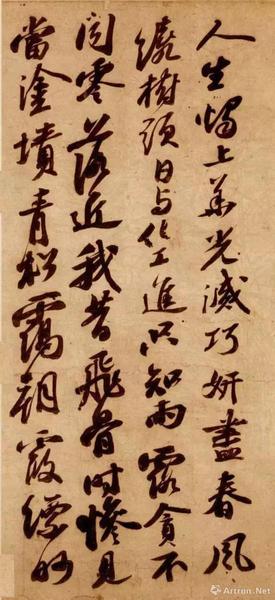 人生燭上華光滅巧妍盡春風
繞樹頭日与化工進只知雨露貪不
聞零落近我昔飛骨時慘見
當塗墳青松靄朝霞縹眇
Artron.Net